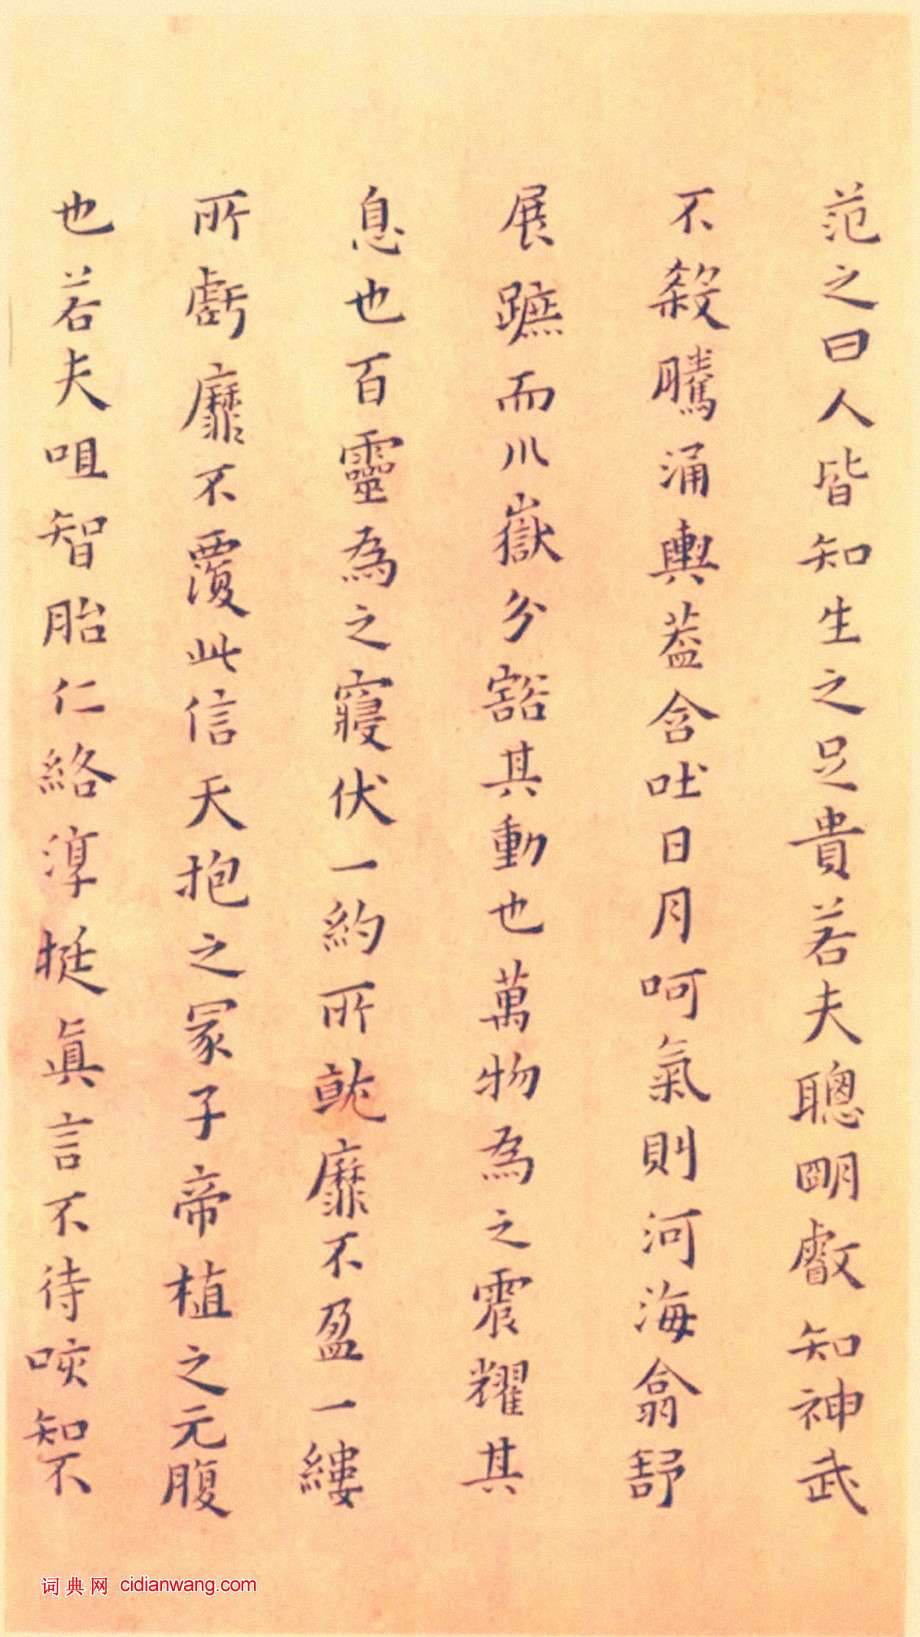 范之曰人皆知生之足貴若夫聰明叡知神武
不殺騰涌輿蓋含吐日月呵氣則河海翕舒
展蹠而川嶽分豁其動也萬物為之震耀其
息也百靈為之寢伏一約所就靡不盈一縷
所虧靡不覆此信天抱之冢子帝植之元腹
也若夫咀智胎仁絡淳挻眞言不待咳知不
词典网 cidianwang.com